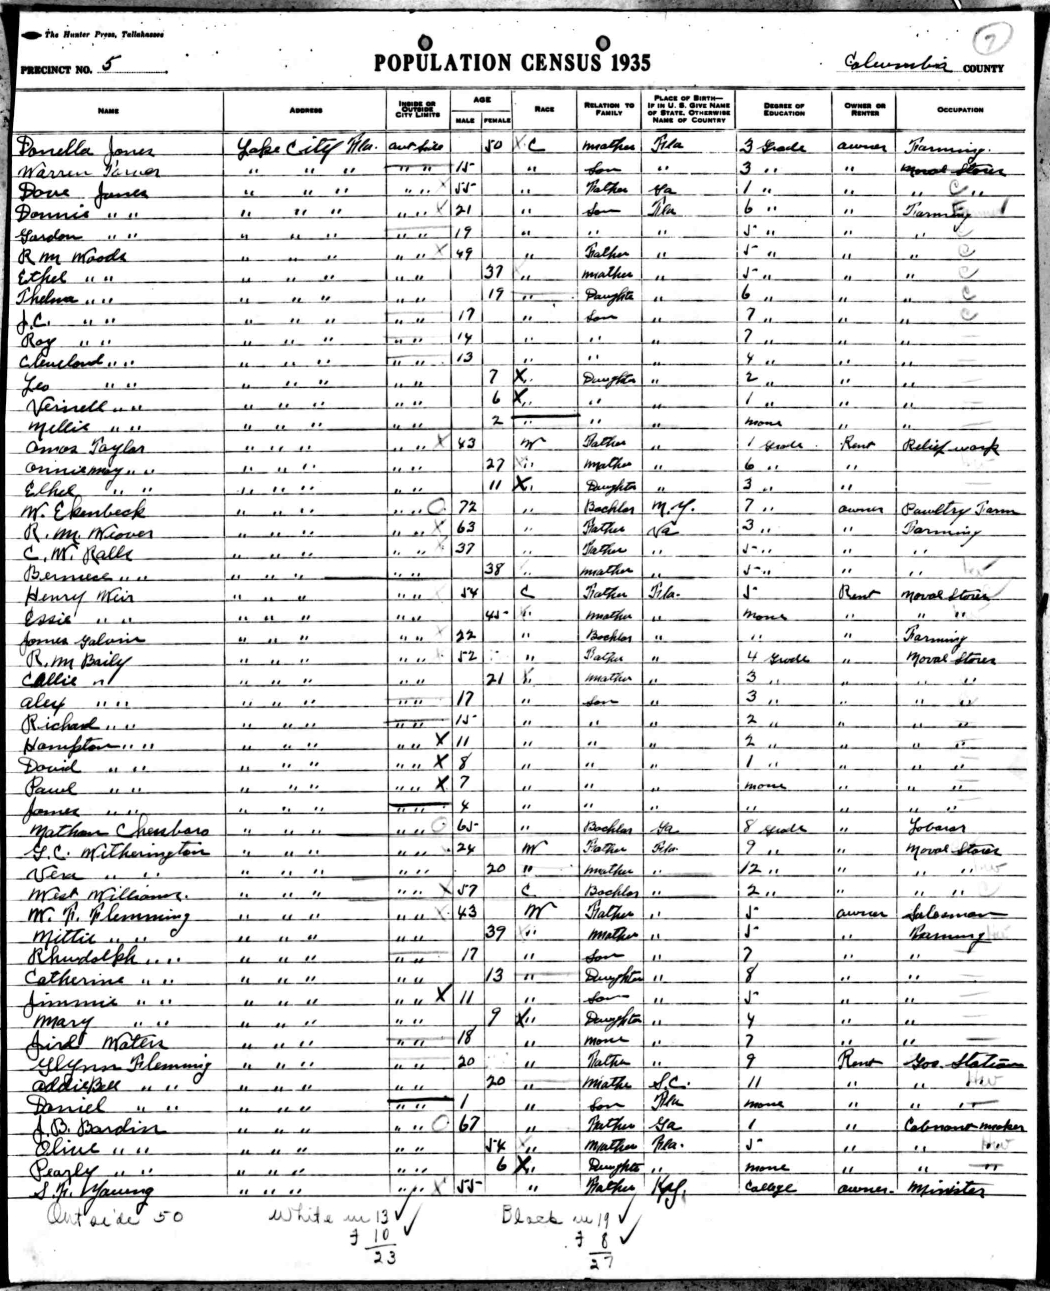 The Hunter Press, Tallahassee
7
PRECINCT NO. 5 POPULATION CENSUS 1935 Columbia COUNTY
NAME ADDRESS INSIDE OR OUTSIDE CITY LIMITS AGE MALE FEMALE RACE RELATION TO FAMILY PLACE OF BIRTH—IF IN U. S. GIVE NAME OF STATE. OTHERWISE NAME OF COUNTRY DEGREE OF EDUCATION OWNER OR RENTER OCCUPATION
Donella Jones Lake City Fla. out side 50 X C Mother Fla 3 Grade owner Farming.
Warren " " " " " 15 " Son " 3 " "
Dove James " " " " " 55 " Father Ga 1 " " " "
Donnie " " " " " " " 21 " Son Fla 6 " " Farming
Gordon " " " " " " " 19 " " " 5 " " "
R M Woods " " " " " 49 " Father " 5 " " "
Ethel " " " " " " " 37 " Mother " 5 " " "
Thelma " " " " " " " 19 " Daughter " 6 " " "
J.C. " " " " " " " 17 " Son " 7 " " "
Roy " " " " " " " 14 " " " 7 " " "
Cleveland " " " " " " " 13 " " " 4 " " "
Leo " " " " " " " 7 X " Daughter " 2 " " "
Vernell " " " " " " " 6 X " " " 1 " " "
Millie " " " " " " " 2 " " " none " "
Amos Taylor " " " " " 43 W Father " 1 Grade Rent Relief work
Anniemay " " " " " " " 27 " Mother " 6 " "
Ethel " " " " " " " 11 X " Daughter " 3 " "
W. Ekenbeck " " " " " 72 " Bachlor N.Y. 7 " owner Poultry Farm
R. M. Weover " " " " " 63 " Father Va 3 " " Farming
C. W. Ralls " " " " " 37 " Father " 5 " " "
Berniece " " " " " " " 38 " Mother " 5 " "
Henry Weir " " " " " 54 C Father Fla. 5 Rent Noval Stores
Essie " " " " " " " 45 " Mother " none " " "
James Galvin " " " " " 22 " Bachlor " " " Farming
R. M Baily " " " " " 52 " Father " 4 Grade " Noval Stores
Callie " " " " " " 21 " Mother " 3 " " " "
Alex " " " " " " " 17 " Son " 3 " " " "
Richard " " " " " " " 15 " " " 2 " " "
Hampton " " " " " " " X 11 " " " 2 " " "
David " " " " " " " X 8 " " " 1 " " "
Paul " " " " " " " X 7 " " " none " " "
James " " " " " " " 4 " " " " " " "
Nathan " " " " " 65 " Bachlor Ga 8 Grade " Laborer
G. C. Witherington " " " " " 24 W Father Fla. 9 " " Noval Stores
Vera " " " " " " " 20 " Mother " 12 " " " "
West Williams. " " " " " X 57 C Bachlor " 2 " " " "
W. F. Flemming " " " " " 43 W Father " 5 owner Salesman
Mittie " " " " " " " 39 " Mother " 5 " Farming
Rhudolph " " " " " " " 17 " Son " 7 " "
Catherine " " " " " " " 13 " Daughter " 8 " "
Jimmie " " " " " " " X 11 " Son " 5 " "
Mary " " " " " " " 9 X " Daughter " 4 " "
Waters " " " " " 18 " none " 7 " "
Glynn Flemming " " " " " 20 " Father " 9 Rent Gas Station
AddieBell " " " " " " " 20 " Mother S.C. 11 " "
Daniel " " " " " " " 1 " Son Fla none " "
J. B. Bardin " " " " " 67 " Father Ga 1 " Cabnant maker
Olive " " " " " " " 54 " Mother Fla. 5 " "
Pearly " " " " " " " 6 X " Daughter " none " "
S. F. Young " " " " " X 55 " Father Ky. College owner Minister
Outside 50 White m 13 ✓ Black m 19 ✓
f 10 ✓ f 8 ✓
23 27